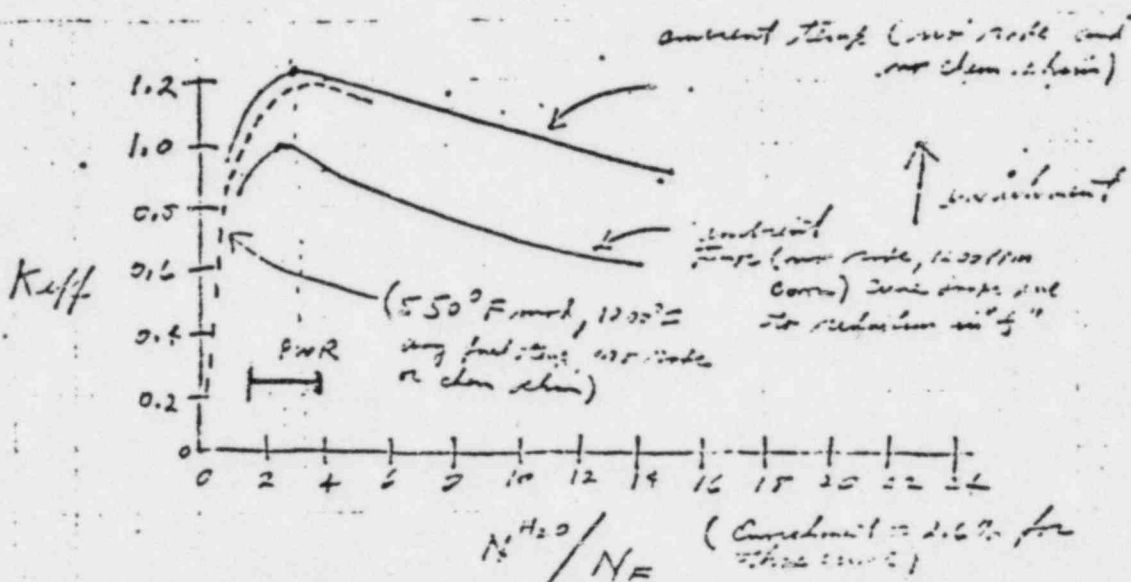 ambient temp (no rods and
no chem. shim)
1.2
1.0
0.8
0.6
0.4
0.2
0
Keff
enrichment
ambient
temp (no rods, 1200 ppm
due
to reduction in "f"
(550°F mod, 1200°F
avg fuel temp, no rods
or chem shim)
PWR
0 2 4 6 8 10 12 14 16 18 20 22 24
N^H2O/N_F
(Enrichment = 2.6% for
)